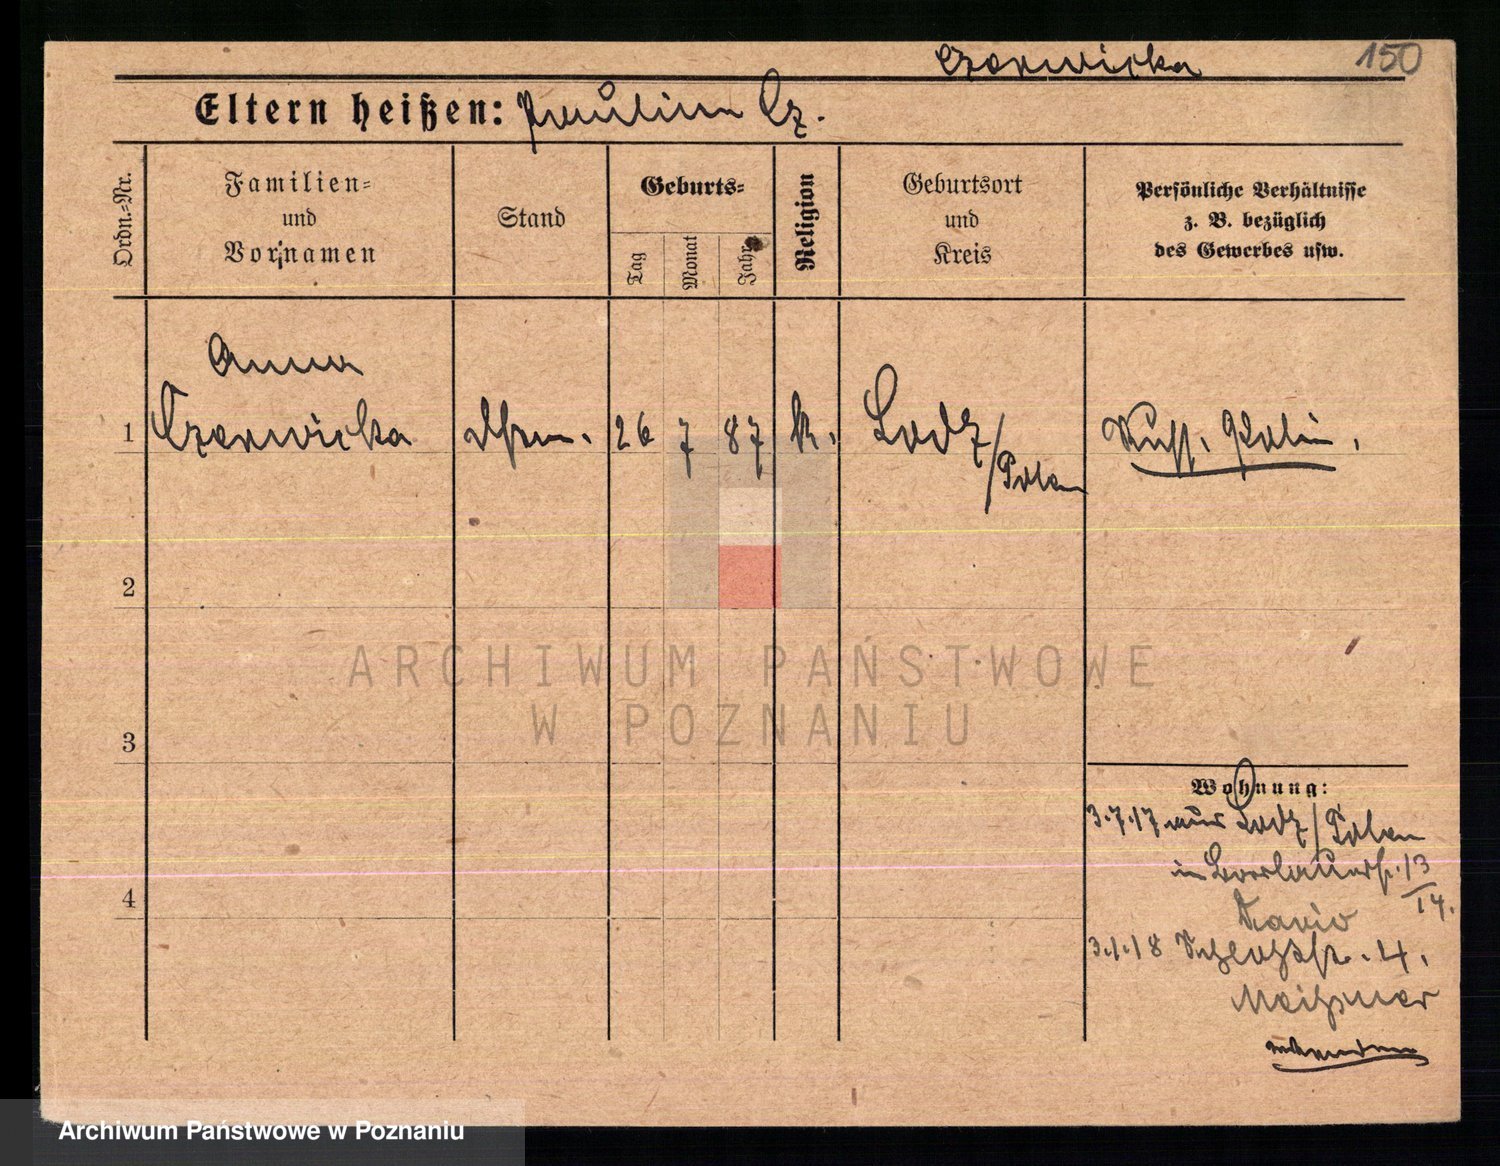 Czarwicka 150
Eltern heißen: Paulina Cz.
Ordn.-Nr.
Familien-
und
Vornamen
Stand
Geburts-
Tag
Monat
Jahr
Religion
Geburtsort
und
Kreis
Persönliche Verhältnisse
z. B. bezüglich
des Gewerbes usw.
Anna
1 Czarwicka 26 7 87 k. Lodz/
Polen
Russ. Polin.
2
3
4
Wohnung:
3.7.17 aus Lodz/Polen
in 13/14.
3.1.18 Schloßstr. 4.
Meißner
ARCHIWUM PAŃSTWOWE
W POZNANIU
Archiwum Państwowe w Poznaniu